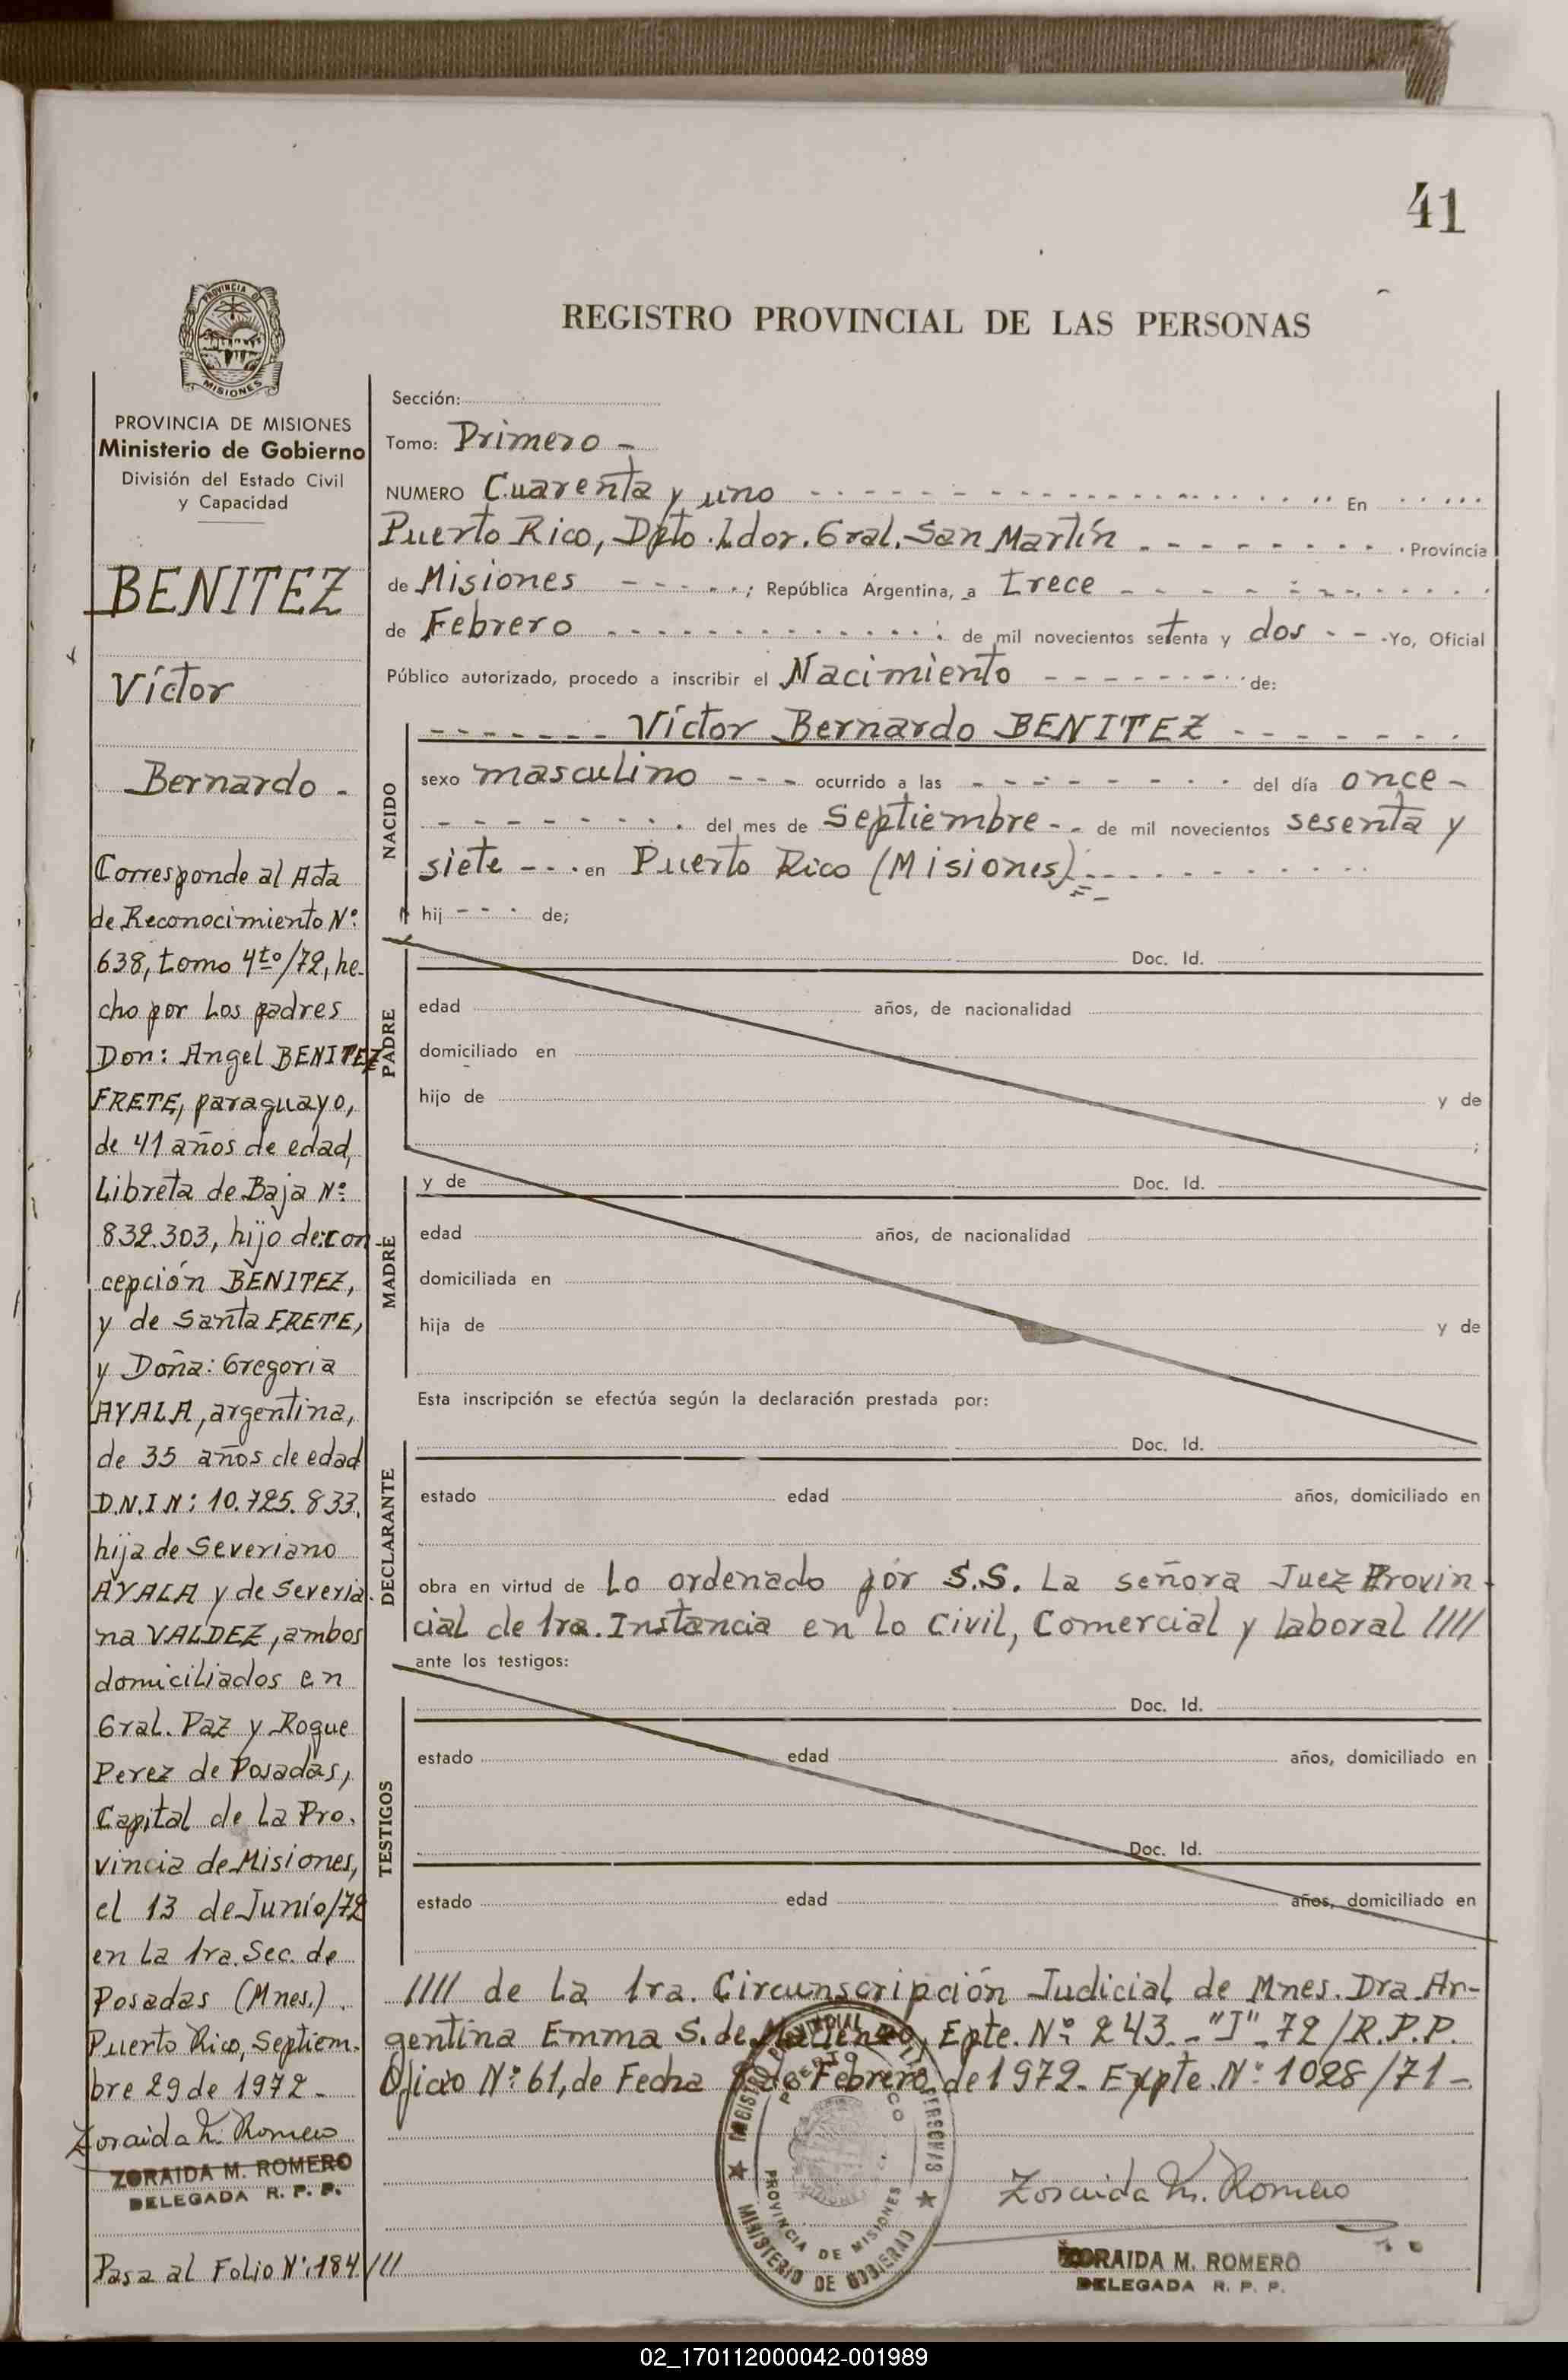 41
REGISTRO PROVINCIAL DE LAS PERSONAS
PROVINCIA DE
MISIONES
PROVINCIA DE MISIONES
Ministerio de Gobierno
División del Estado Civil
y Capacidad
BENITEZ
Víctor
Bernardo -
Corresponde al Acta
de Reconocimiento Nº:
638, tomo 4to/72, he-
cho por los padres
Don: Angel BENITEZ
FRETE, paraguayo,
de 41 años de edad,
Libreta de Baja Nº:
832.303, hijo de: con-
cepción BENITEZ,
y de Santa FRETE,
y Doña: Gregoria
AYALA, argentina,
de 35 años de edad
D.N.I N: 10.725.833.
hija de Severiano
AYALA y de Severia-
na VALDEZ, ambos
domiciliados en
Gral. Paz y Roque
Perez de Posadas,
Capital de La Pro-
vincia de Misiones,
el 13 de Junio/72
en La 1ra. Sec. de
Posadas (Mnes.).
Puerto Rico, Septiem-
bre 29 de 1972 -
Zoraida M. Romero
ZORAIDA M. ROMERO
DELEGADA R. P. P.
Pasa al Folio Nº: 184 ///
Sección:
Tomo: Primero -
NUMERO Cuarenta y uno En
Puerto Rico, Dpto. Ldor. Gral. San Martín Provincia
de Misiones ; República Argentina, a trece
de Febrero de mil novecientos setenta y dos - - -Yo, Oficial
Público autorizado, procedo a inscribir el Nacimiento de:
NACIDO
Víctor Bernardo BENITEZ
sexo masculino - - - ocurrido a las del día once -
del mes de Septiembre - - de mil novecientos sesenta y
siete - - - en Puerto Rico (Misiones)
hij - - - de;
PADRE
Doc. Id.
edad años, de nacionalidad
domiciliado en
hijo de y de
;
MADRE
y de Doc. Id.
edad años, de nacionalidad
domiciliada en
hija de y de
Esta inscripción se efectúa según la declaración prestada por:
DECLARANTE
Doc. Id.
estado edad años, domiciliado en
obra en virtud de Lo ordenado por S.S. La señora Juez Provin-
cial de 1ra. Instancia en Lo Civil, Comercial y laboral ////
ante los testigos:
TESTIGOS
Doc. Id.
estado edad años, domiciliado en
Doc. Id.
estado edad años, domiciliado en
//// de La 1ra. Circunscripción Judicial de Mnes. Dra. Ar-
gentina Emma S. de Epte. Nº: 243 - "J" - 72/R.P.P.
Oficio Nº: 61, de Fecha de Febrero de 1972. Expte. Nº: 1028/71 -
PUERTO RICO
PROVINCIA DE MISIONES
MINISTERIO DE GOBIERNO
Zoraida M. Romero
ZORAIDA M. ROMERO
DELEGADA R. P. P.
02_170112000042-001989